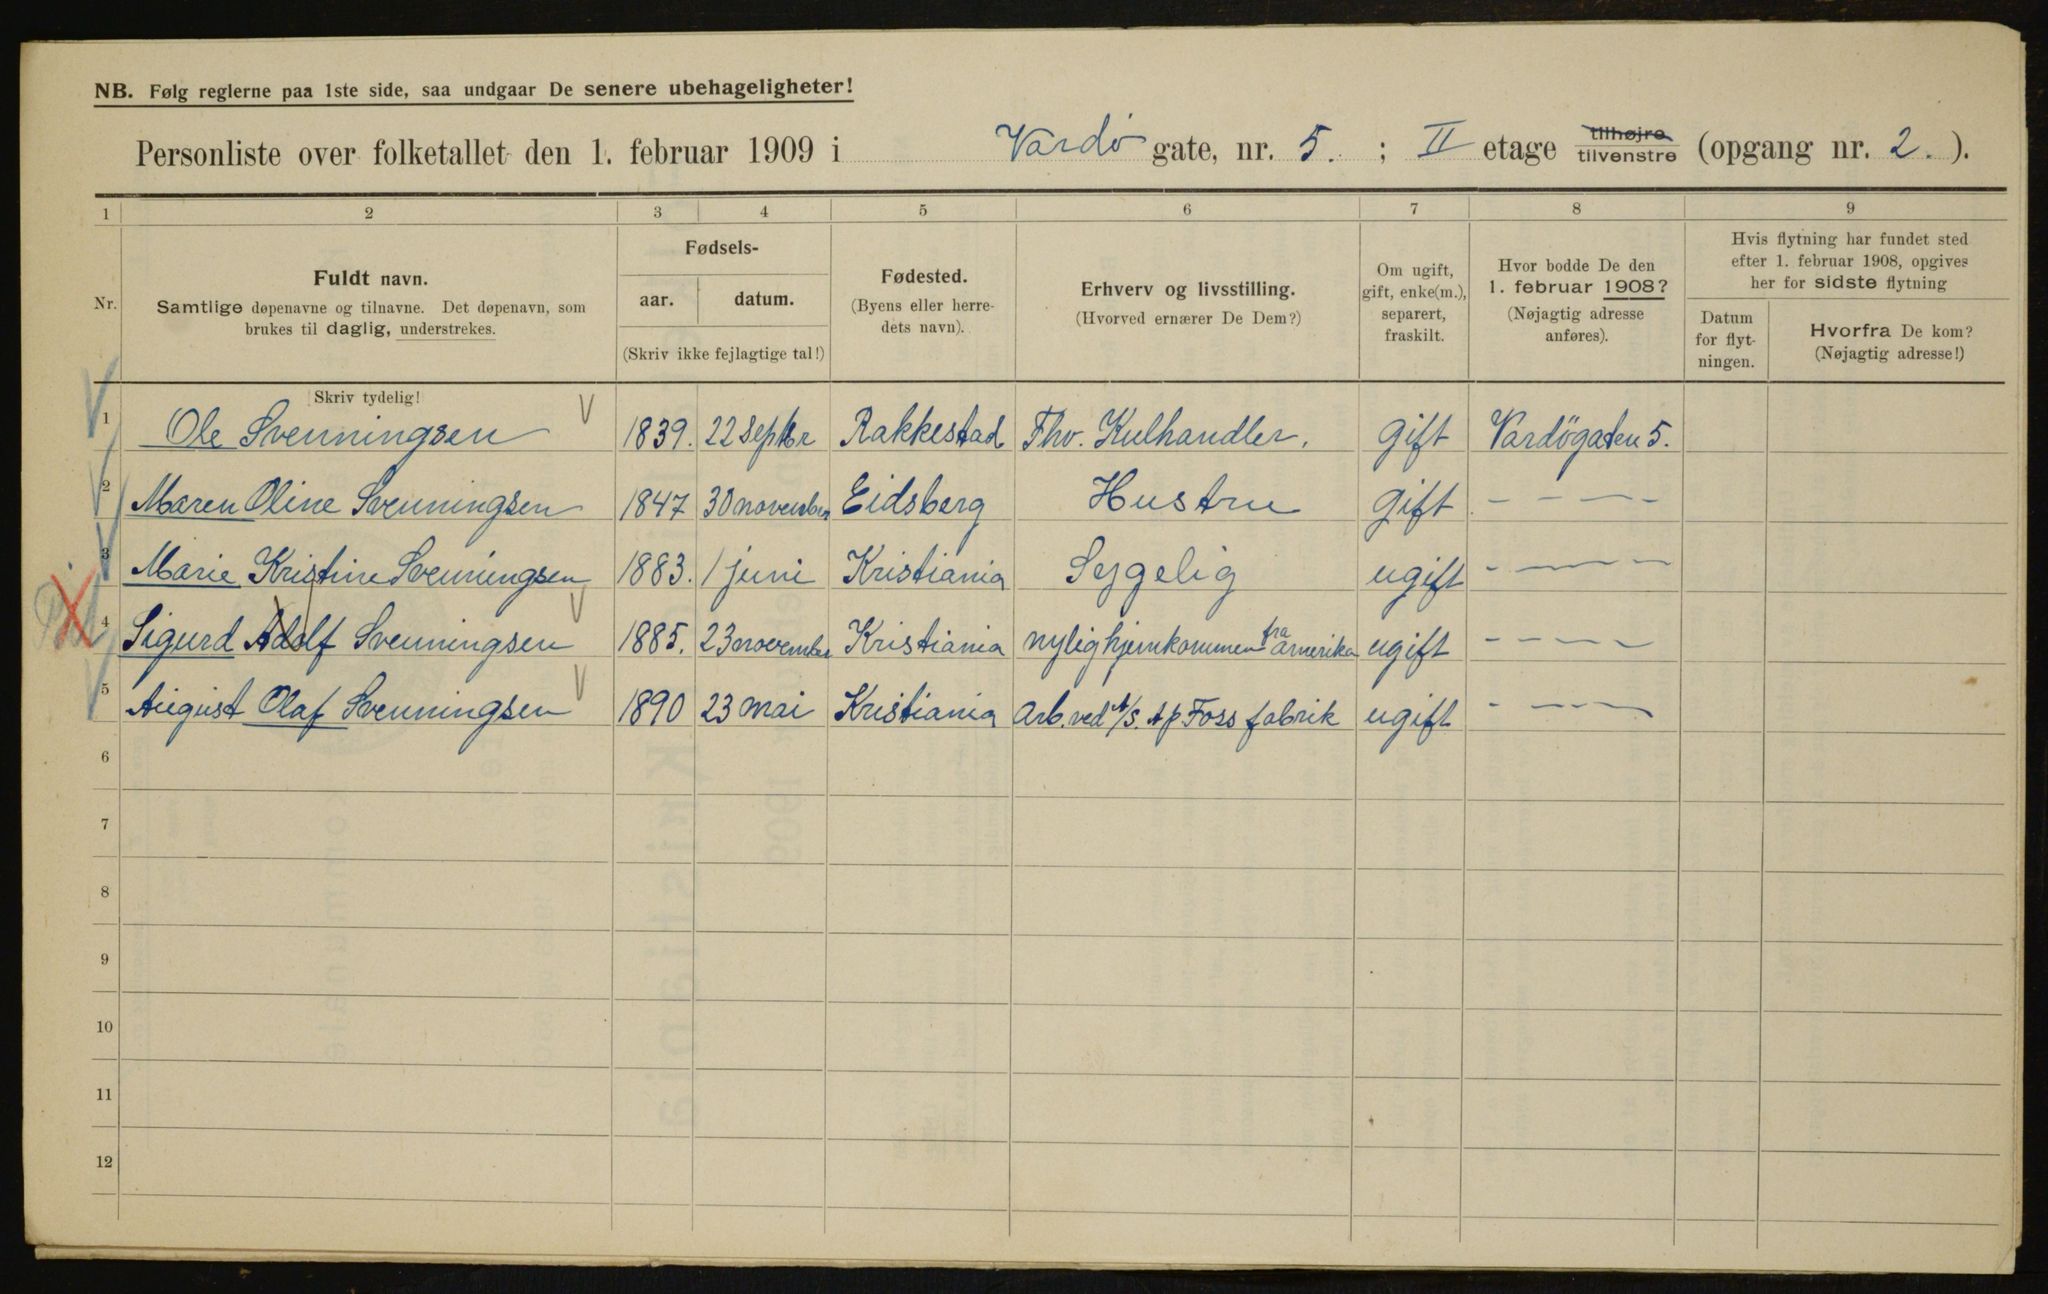 NB. Følg reglerne paa 1ste side, saa undgaar De senere ubehageligheter!
Personliste over folketallet den 1. februar 1909 i Vardø gate, nr. 5. ; II etage tilhøjre tilvenstre (opgang nr. 2. ).
1 2 3 4 5 6 7 8 9
Nr.
Fuldt navn.
Samtlige døpenavne og tilnavne. Det døpenavn, som
brukes til daglig, understrekes.
Skriv tydelig!
Fødsels-
aar. datum.
(Skriv ikke fejlagtige tal!)
Fødested.
(Byens eller herre-
dets navn).
Erhverv og livsstilling.
(Hvorved ernærer De Dem?)
Om ugift,
gift, enke(m.),
separert,
fraskilt.
Hvor bodde De den
1. februar 1908?
(Nøjagtig adresse
anføres).
Hvis flytning har fundet sted
efter 1. februar 1908, opgives
her for sidste flytning
Datum
for flyt-
ningen.
Hvorfra De kom?
(Nøjagtig adresse!)
1 Ole Svenningsen 1839. 22 septbr Rakkestad Fhv. Kulhandler. gift Vardøgaten 5.
2 Maren Oline Svenningsen 1847 30 november Eidsberg Hustru gift - - - -
3 Marie Kristine Svenningsen 1883. 1 juni Kristiania Sygelig ugift - - - -
4 Sigurd Adolf Svenningsen 1885. 23 november Kristiania nylig hjemkommen fra amerika ugift - - - -
5 August Olaf Svenningsen 1890 23 mai Kristiania Arb. ved A/S. Ap Foss fabrik ugift - - - -
6
7
8
9
10
11
12